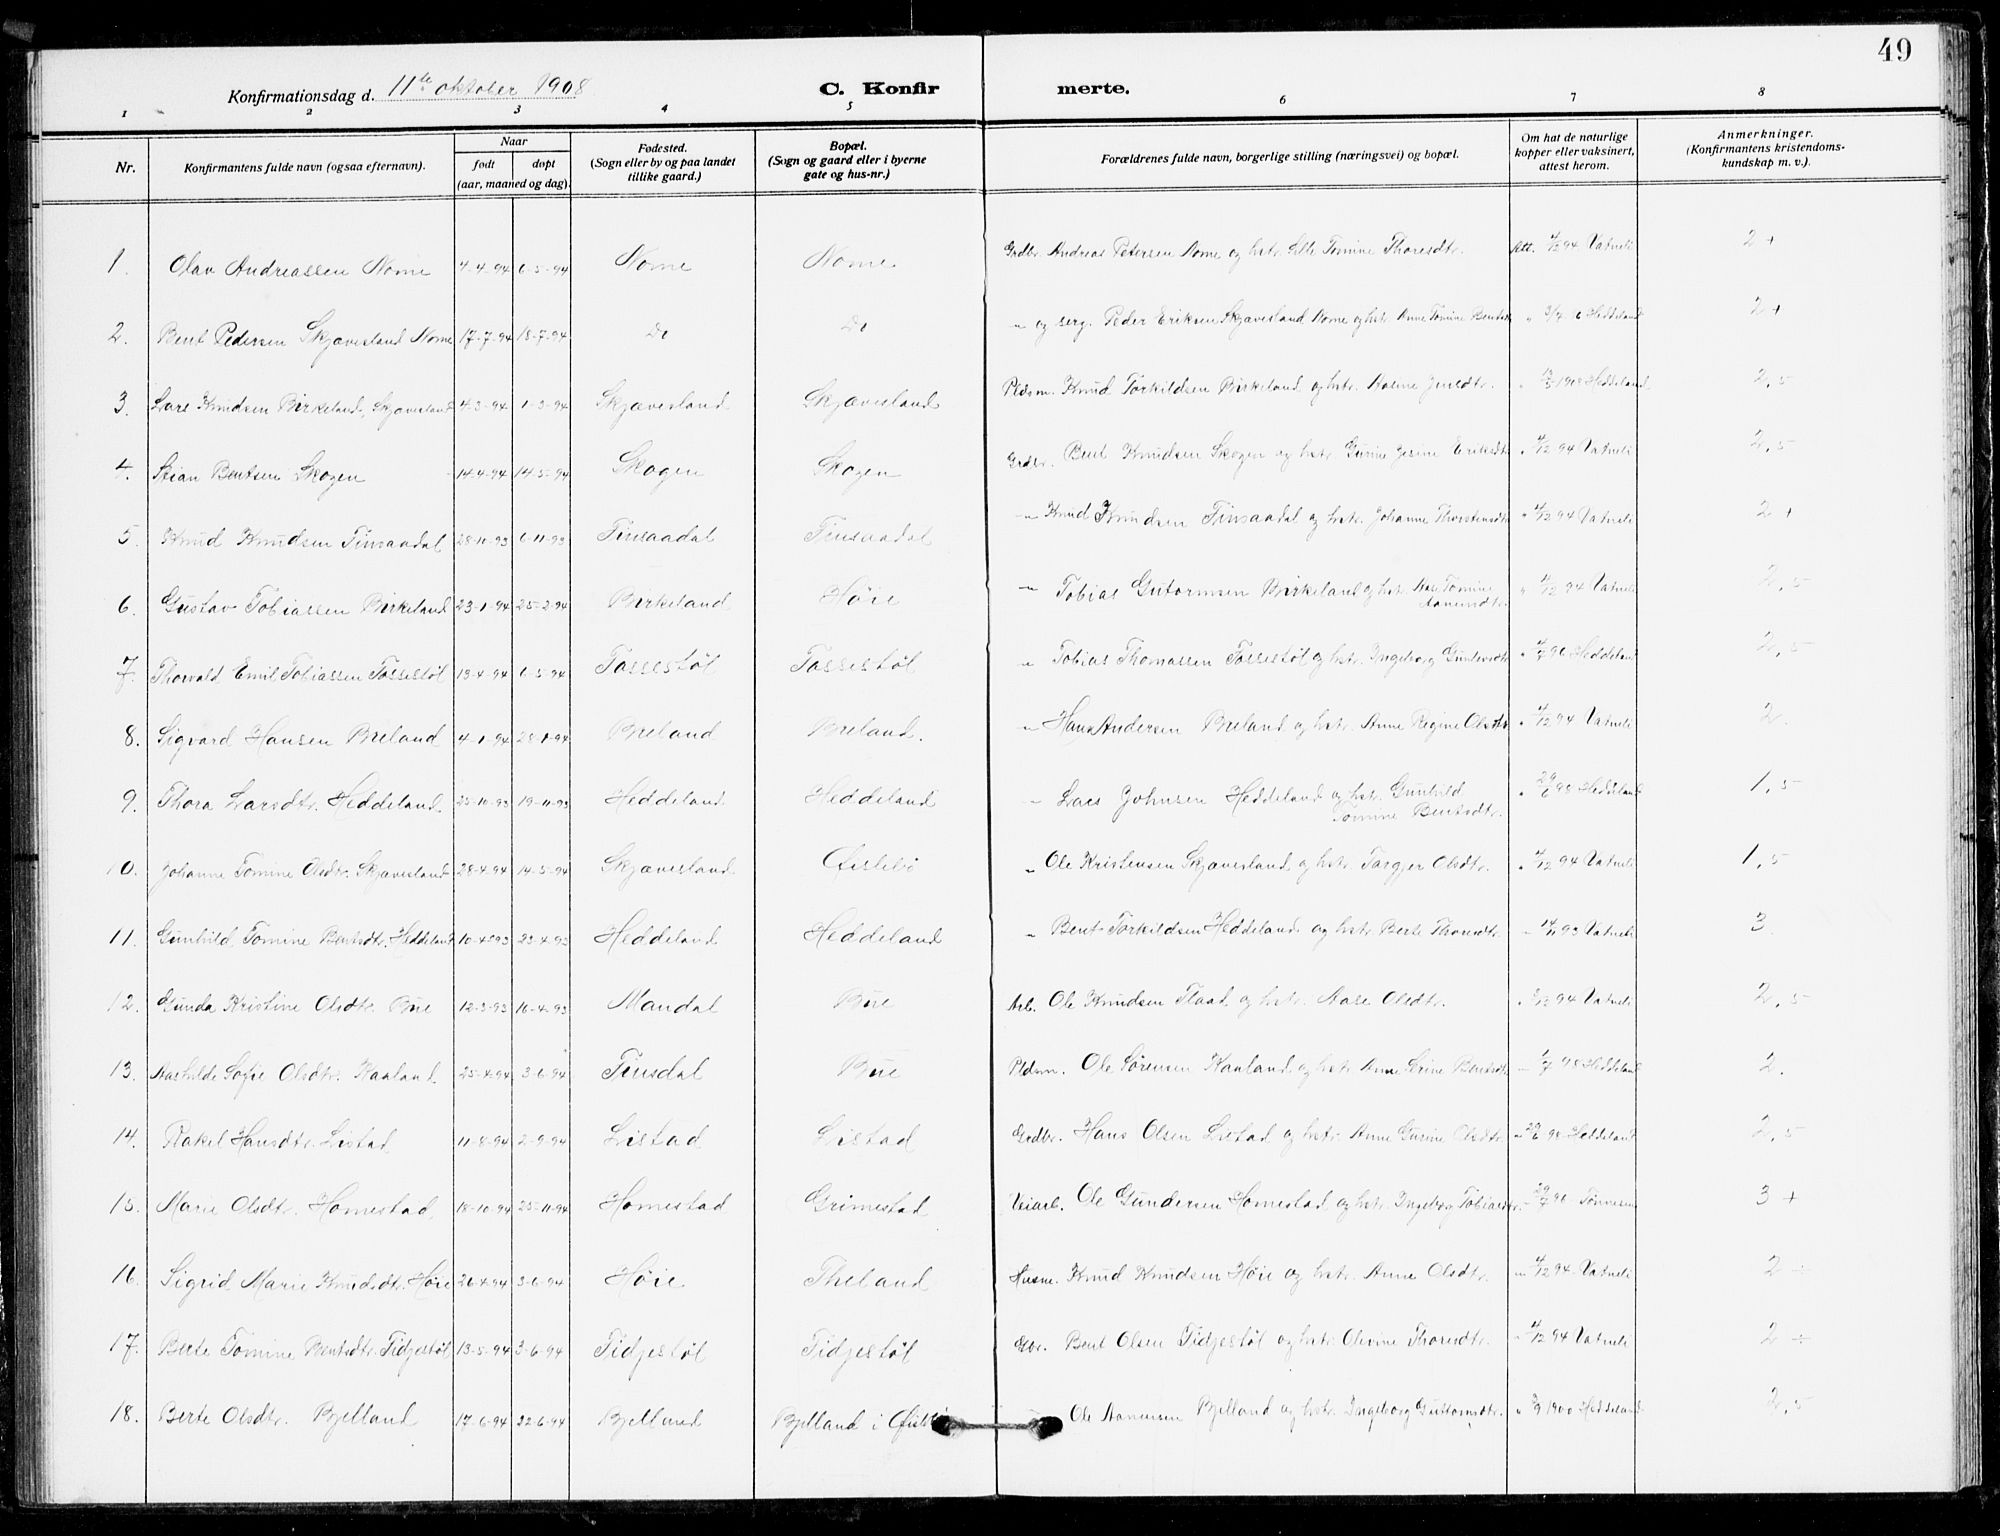 49
Konfirmationsdag d. 11te oktober 1908
C. Konfir merte.
1 2 3 4 5 6 7 8
Nr. Konfirmantens fulde navn (ogsaa efternavn). Naar født døpt (aar, maaned og dag). Fødested. (Sogn eller by og paa landet tillike gaard.) Bopæl. (Sogn og gaard eller i byerne gate og hus-nr.) Forældrenes fulde navn, borgerlige stilling (næringsvei) og bopæl. Om hat de naturlige kopper eller vaksinert, attest herom. Anmerkninger. (Konfirmantens kristendoms-kundskap m. v.).
1. Olav Andreassen Nome 4-4-94 6-5-94 Nome Nome Grdbr. Andreas Petersen Nome og hstr. Tomine Thoresdtr. Att. 4/12 94 Vatneli 2+
2. Bent Pedersen Skjævesland Nome 17-7-94 18-7-94 Do Do " og serg. Peder Eriksen Skjævesland Nome og hstr. Anne Tomine Bentsdtr. " Heddeland 2+
3. Lars Knudsen Birkeland, Skjævesland 4-3-94 1-3-94 Skjævesland Skjævesland Pldsm. Knud Torkildsen Birkeland og hstr. Aaline Jensdtr. " Heddeland 2,5
4. Stian Bentsen Skogen 14-4-94 14-5-94 Skogen Skogen Grdbr. Bent Knudsen Skogen og hstr. Gurine Jesine Eriksdtr. " 4/12 94 Vatneli 2,5
5. Knud Knudsen Finsaadal 28-10-93 6-11-93 Finsaadal Finsaadal " Knud Knudsen Finsaadal og hstr. Johanne Thorstensdtr. " 4/12 94 Vatneli 2+
6. Gustav Tobiassen Birkeland 23-1-94 25-2-94 Birkeland Høie " Tobias Gutormsen Birkeland og hstr. Aase Tomine Aanensdtr. " 4/12 94 Vatneli 2,5
7. Thorvald Emil Tobiassen Fossestøl 13-4-94 6-5-94 Fossestøl Fossestøl " Tobias Thomassen Fossestøl og hstr. Ingeborg " 96 Heddeland 2,5
8. Sigvard Hansen Breland 4-1-94 28-1-94 Breland Breland. " Hans Andersen Breland og hstr. Anne Regine Olsdtr. " 4/12 94 Vatneli 2.
9. Thora Larsdtr. Heddeland. 25-10-93 19-11-93 Heddeland Heddeland " Lars Johnsen Heddeland og hstr. Gunhild Tomine Bentsdtr. " 29/6 98 Heddeland 1,5
10. Johanne Tomine Olsdtr. Skjævesland 28-4-94 14-5-94 Skjævesland Øislebø " Ole Kristensen Skjævesland og hstr. Targjer Olsdtr. " 4/12 94 Vatneli 1,5
11. Gunhild Tomine Bentsdtr. Heddeland 10-4-93 23-4-93 Heddeland Heddeland " Bent Torkildsen Heddeland og hstr. Berte Thoresdtr. " 14/11 93 Vatneli 3.
12. Gunda Kristine Olsdtr. Bue 12-3-93 16-4-93 Mandal Bue Arb. Ole Knudsen Flaat og hstr. Aase Olsdtr. " 94 Vatneli 2,5
13. Aashilde Sofie Olsdtr. Kaaland. 25-4-94 3-6-94 Finsdal Bue Pldsm. Ole Sørensen Kaaland og hstr. Anne Serine Bentsdtr. " 98 Heddeland 2.
14. Rakel Hansdtr. Listad 11-8-94 2-9-94 Listad Listad Grdbr. Hans Olsen Listad og hstr. Anne Gurine Olsdtr. " 29/6 98 Heddeland 2,5
15. Marie Olsdtr. Homestad, 18-10-94 25-11-94 Homestad Grimestad Veiarb. Ole Gundersen Homestad og hstr. Ingeborg Tobiasdtr. " 29/7 96 3+
16. Sigrid Marie Knudsdtr. Høie 26-4-94 3-6-94 Høie Theland Husm. Knud Knudsen Høie og hstr. Anne Olsdtr. " 4/12 94 Vatneli 2÷
17. Berte Tomine Bentsdtr. Tidjestøl 13-5-94 3-6-94 Tidjestøl Tidjestøl Gbr. Bent Olsen Tidjestøl og hstr. Olevine Thoresdtr. " 4/12 94 Vatneli 2÷
18. Berte Olsdtr. Bjelland 17-6-94 22-6-94 Bjelland Bjelland i Øislebø Ole Aanensen Bjelland og hstr. Ingeborg Guttormsdtr. " 1900 Heddeland 2,5